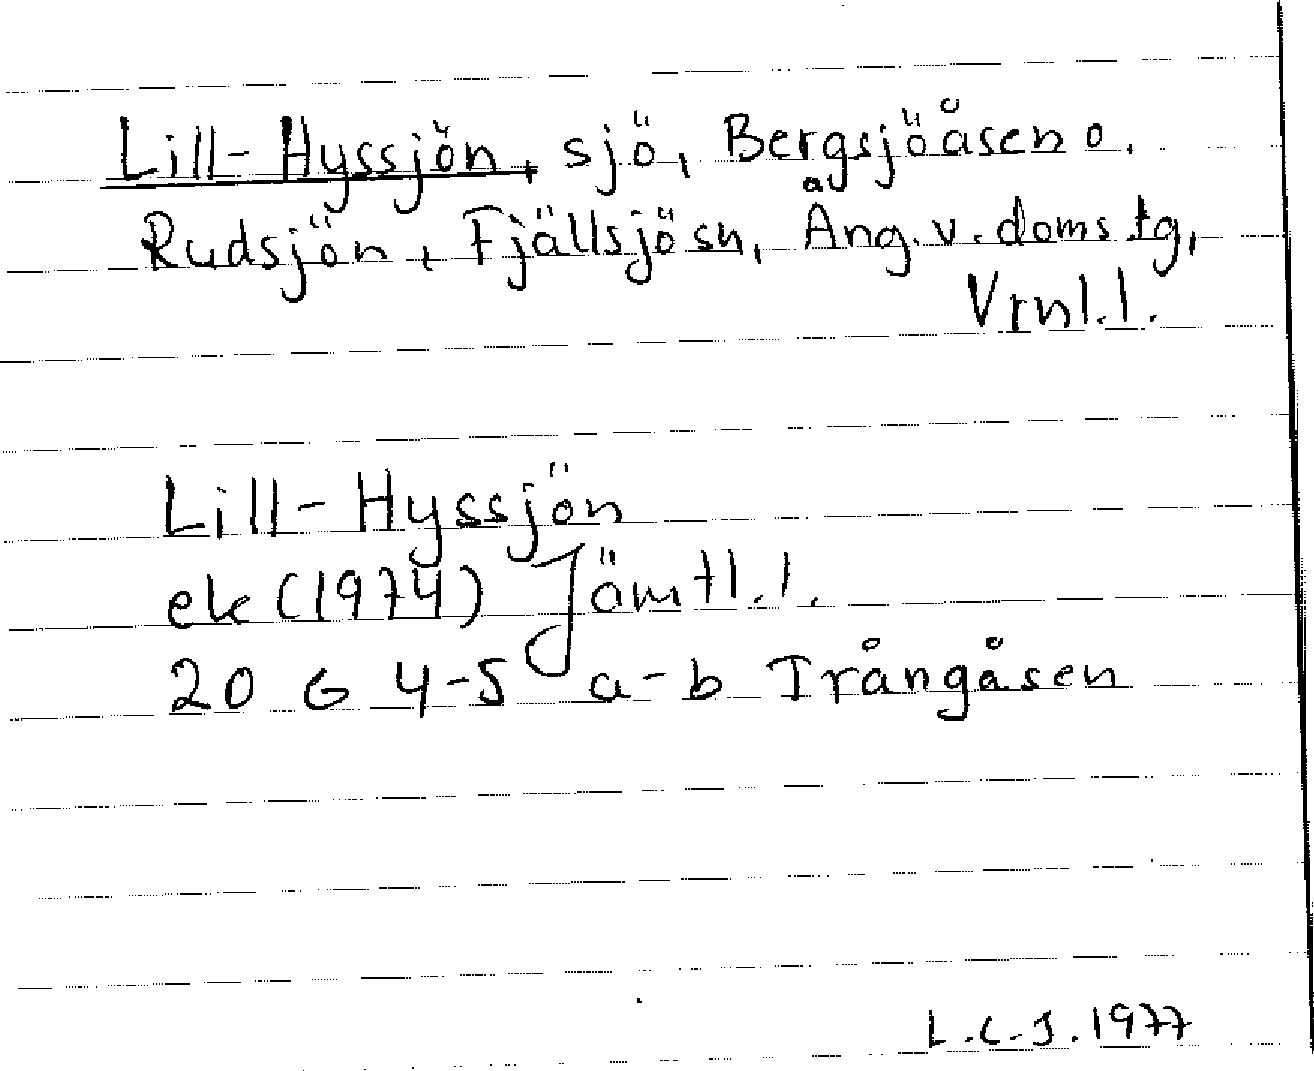 Lill-Hyssjön, sjö, Bergsjöåsen o.
Rudsjön, Fjällsjösn, Ång. v. domstg,
Vrnl.l.
Lill-Hyssjön
ek (1974) Jämtl.l.
20 G 4-5 a-b Trångåsen
L.C.J. 1977